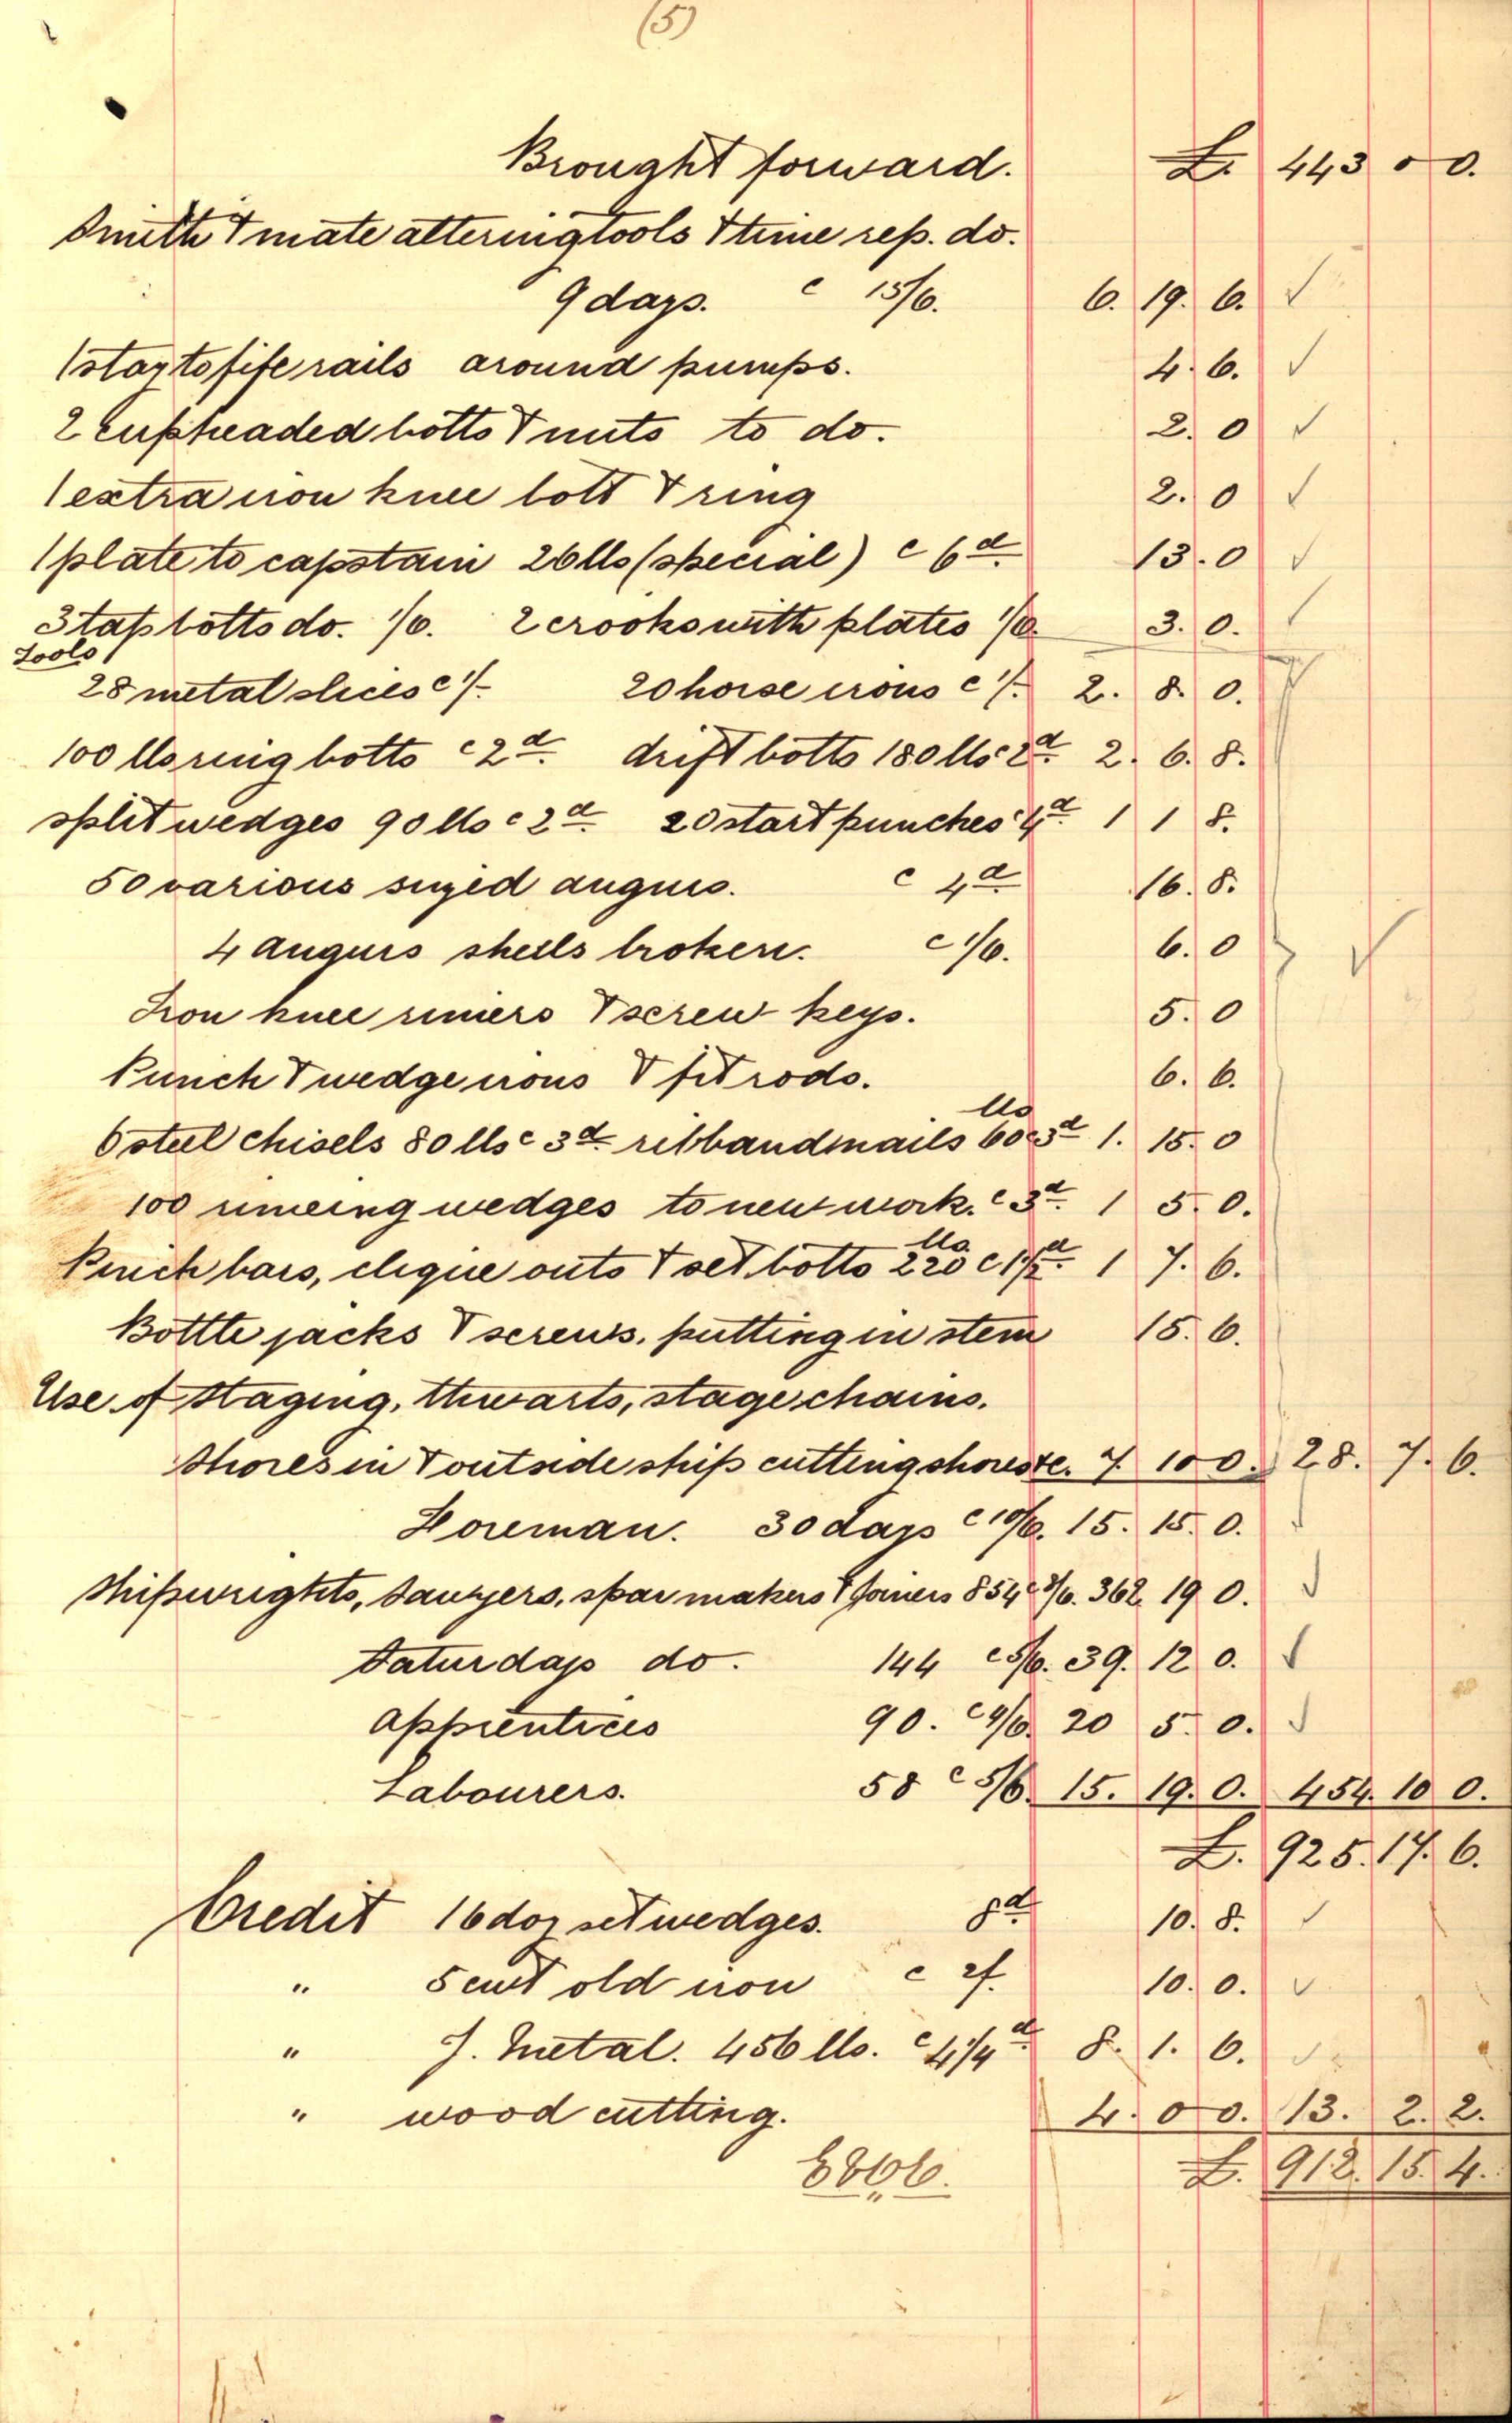 (5)
Brought forward. £. 443 0 0.
Smith & mate altering tools & time rep. do.
9 days. c 15/6. 6. 19. 6.
1 stay to fife rails around pumps. 4. 6.
2 cupheaded bolts & nuts to do. 2. 0
1 extra iron knee bolt & ring 2. 0
1 plate to capstain 26 lbs (special) c 6d. 13. 0
3 tap bolts do. 1/6. 2 crooks with plates 1/6. 3. 0.
Tools
28 metal slices c 1/- 20 horse irons c 1/- 2. 8. 0.
100 lbs ring bolts c 2d. drift bolts 180 lbs c 2d. 2. 6. 8.
split wedges 90 lbs c 2d. 20 start punches c 4d. 1 1 8.
50 various sized augurs. c 4d 16. 8.
4 augurs shells broken. c 1/6. 6. 0
Iron knee rimers & screw keys. 5. 0
Punch & wedge irons & fit rods. 6. 6.
6 steel chisels 80 lbs c 3d. ribband nails 60 lbs c 3d 1. 15. 0
100 rimeing wedges to new work. c 3d. 1 5. 0.
Pinch bars, clique outs & set bolts 220 lbs. c 1½d. 1 7. 6.
Bottle jacks & screws. putting in stem 15. 6.
Use of staging, thwarts, stage chains.
Shores in & outside ship cutting shores &c. 7. 10 0. 28. 7. 6.
Foreman. 30 days c 10/6. 15. 15. 0.
Shipwrights, Sawyers, spar makers & Joiners 854 c 8/6. 362. 19 0.
Saturdays do. 144 c 5/6. 39. 12 0.
Apprentices 90. c 4/6. 20 5. 0.
Labourers. 58 c 5/6. 15. 19. 0. 454. 10 0.
£. 925. 17. 6.
Credit 16 doz set wedges. 8d. 10. 8.
" 5 cwt old iron c 2/. 10. 0.
" Y. Metal. 456 lbs. c 4¼d. 8. 1. 6.
" wood cutting. 4. 0 0. 13. 2. 2.
£. 912. 15. 4.